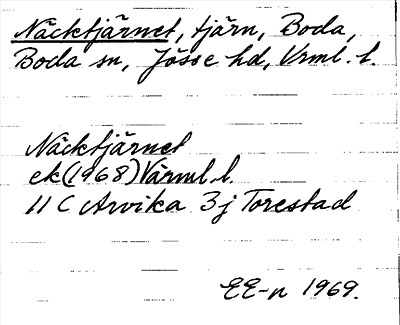 Näcktjärnet, tjärn, Boda,
Boda sn, Jösse hd, Vrml. l.
Näcktjärnet
ek (1968) Värml. l.
11 C Arvika 3j Torestad
EE-n 1969.